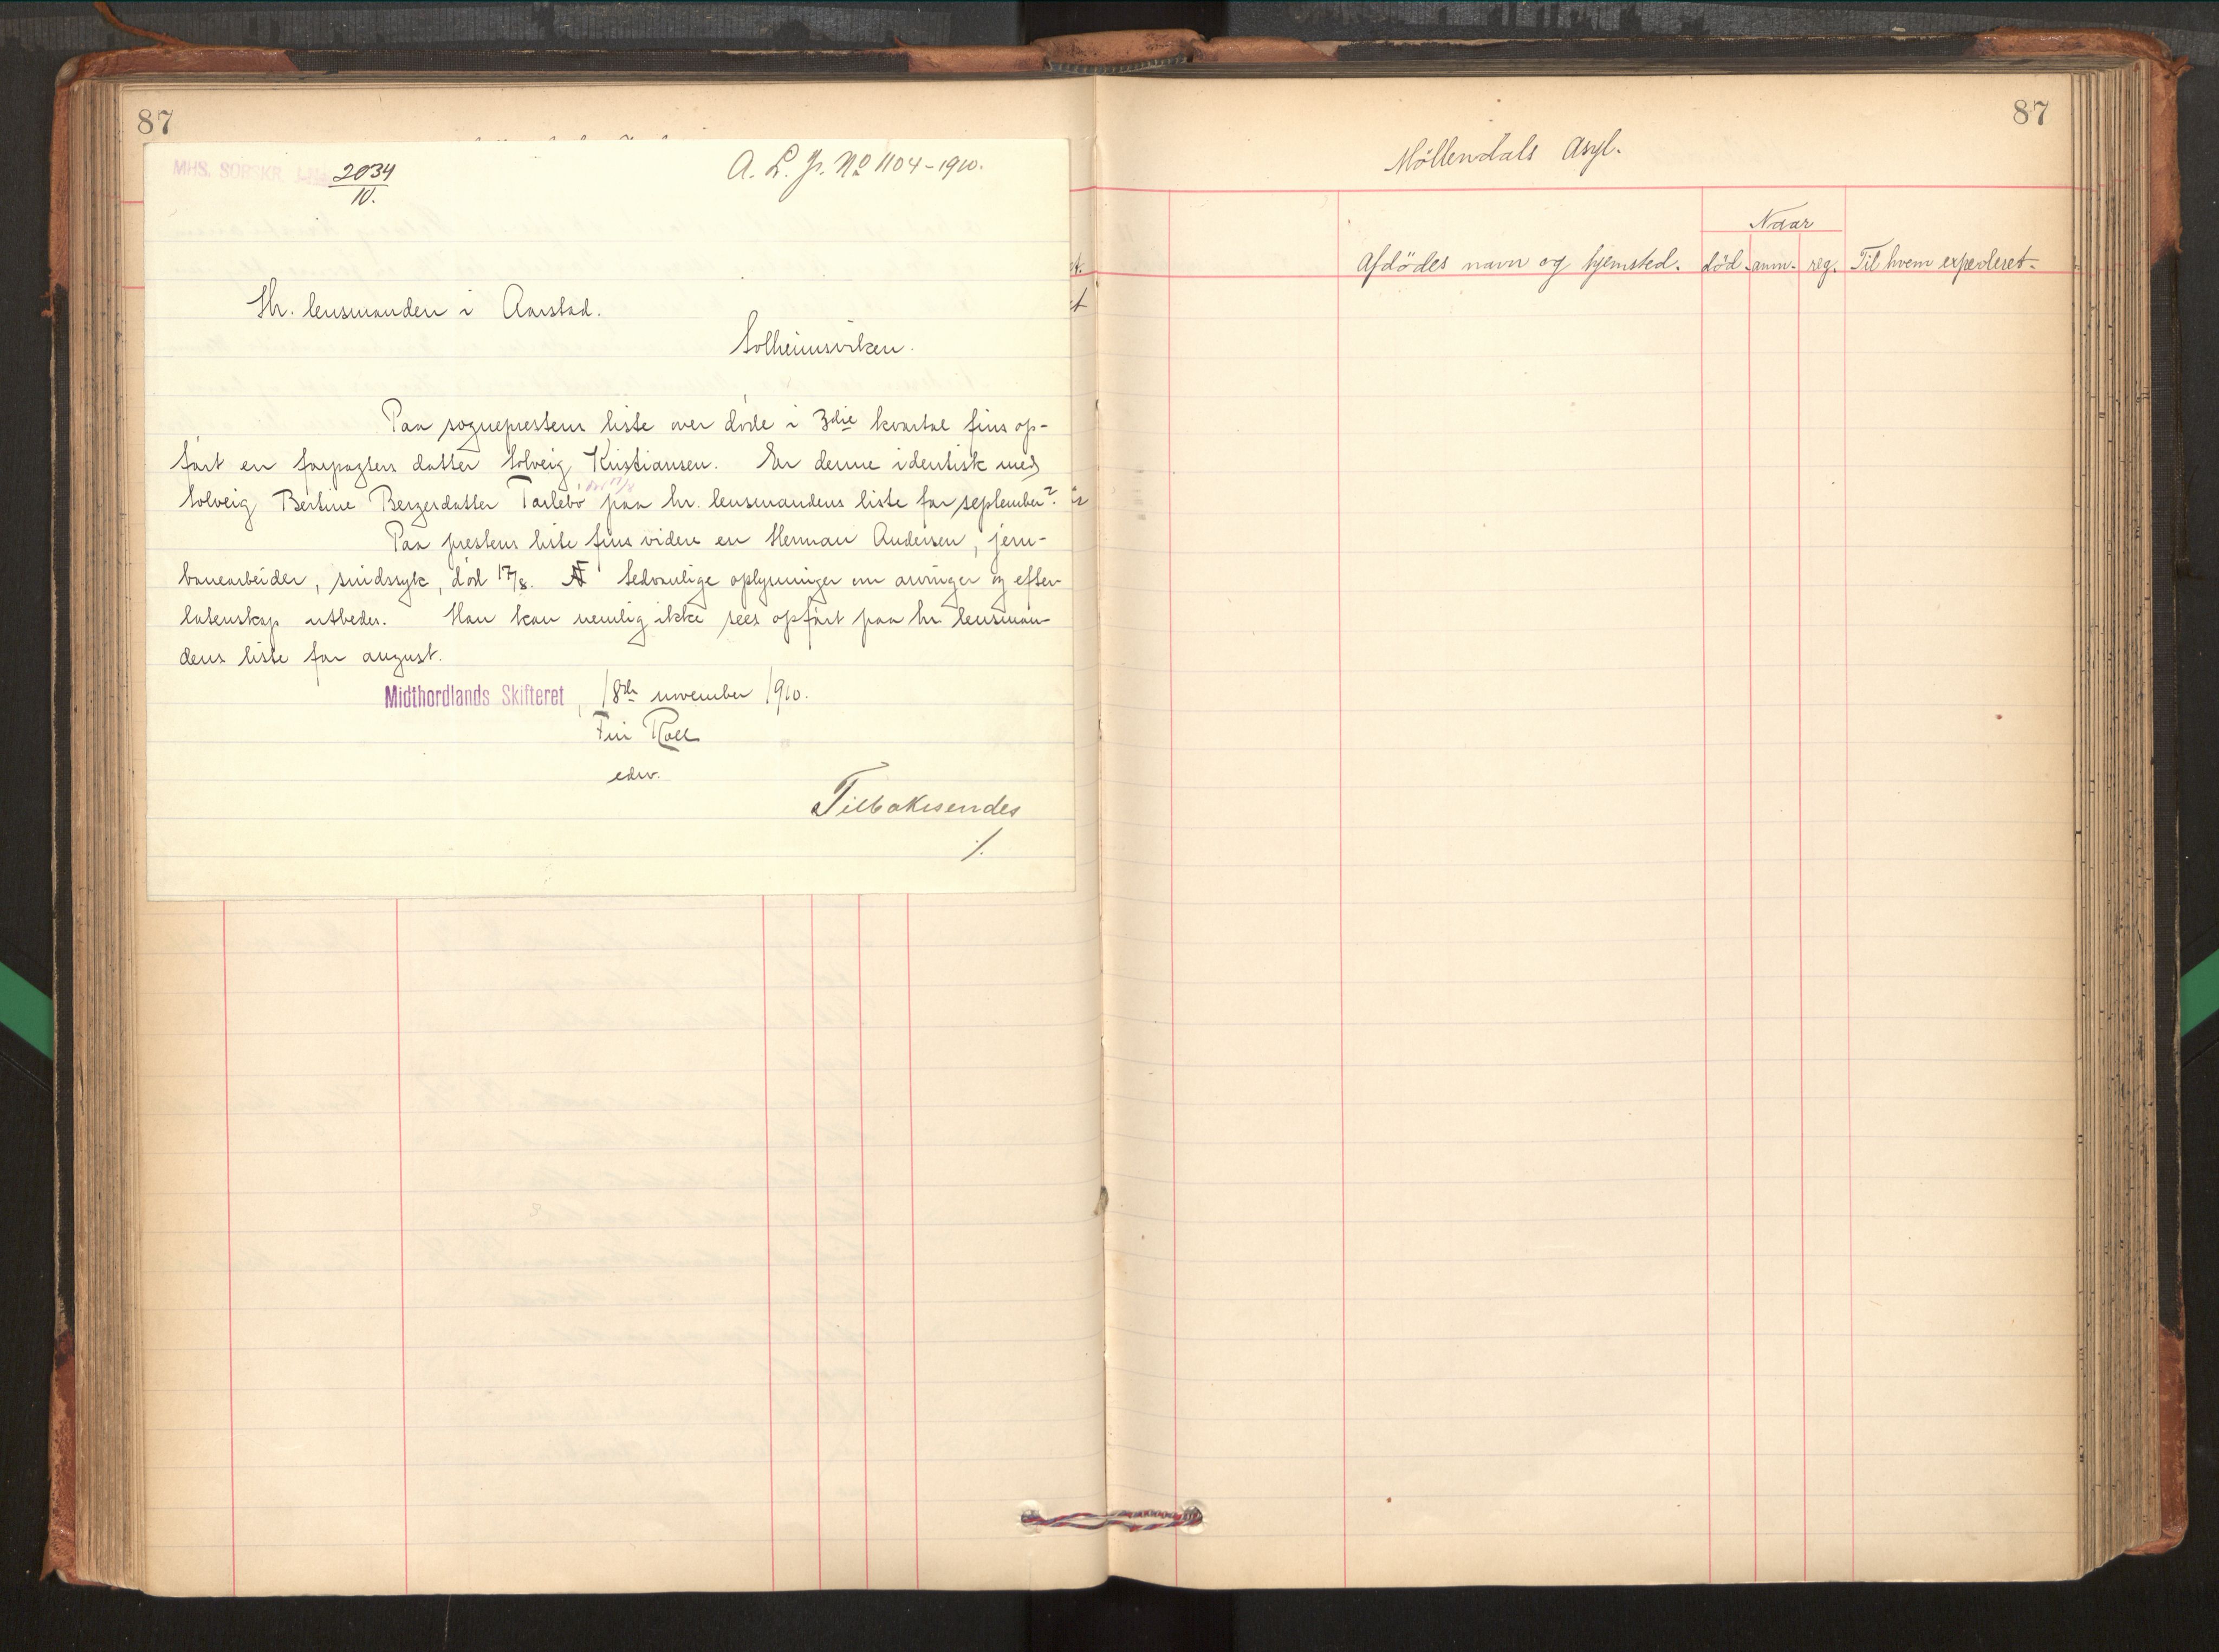 87
MHS. SORSKR.
2034
10.
A. L. Jr. No 1104-1910.
Hr. lensmanden i Aarstad.
Solheimsviken.
Paa sogneprestens liste over døde i 3die kvartal fins op-
ført en forpagters datter Solveig Kristiansen. Er denne identisk med
Solveig Bertine Bergersdatter Tarlebø paa hr. lensmandens liste for september?
Paa prestens liste fins videre en Herman Andersen, jern-
banearbeider, sindssyk, död 17/8. Sedvanlige oplysninger om arvinger og efter-
latenskap utbedes. Han kan nemlig ikke sees opført paa hr. lensman-
dens liste for august.
Midthordlands Skifteret, 18de november 1910.
Fin Roll
edsv.
Tilbakesendes
87
Möllendals Asyl.
Naar
Afdödes navn og hjemsted. död. anm. reg. Til hvem expederet.